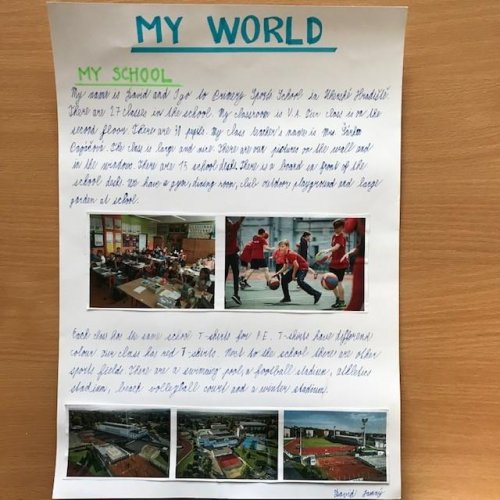 MY WORLD
MY SCHOOL
My name is David and I go to Sports School in Uherské Hradiště.
There are 27 classes in the school. My classroom is V.A. Our class is on the
second floor. There are 30 pupils. My class teacher's name is Mrs.
The class is large and nice. There are our pictures on the wall and
in the window. There are 15 school desks. There is a board in front of the
school desks. We have a gym, dining room, club outdoor playground and large
garden at school.
Each class has the same school T-shirts for P.E. T-shirts have different
colour. Our class has red T-shirts. Next to the school there are other
sports fields. There are a swimming pool, a football stadium, athletic
stadium, beach volleyball court and a winter stadium.
David